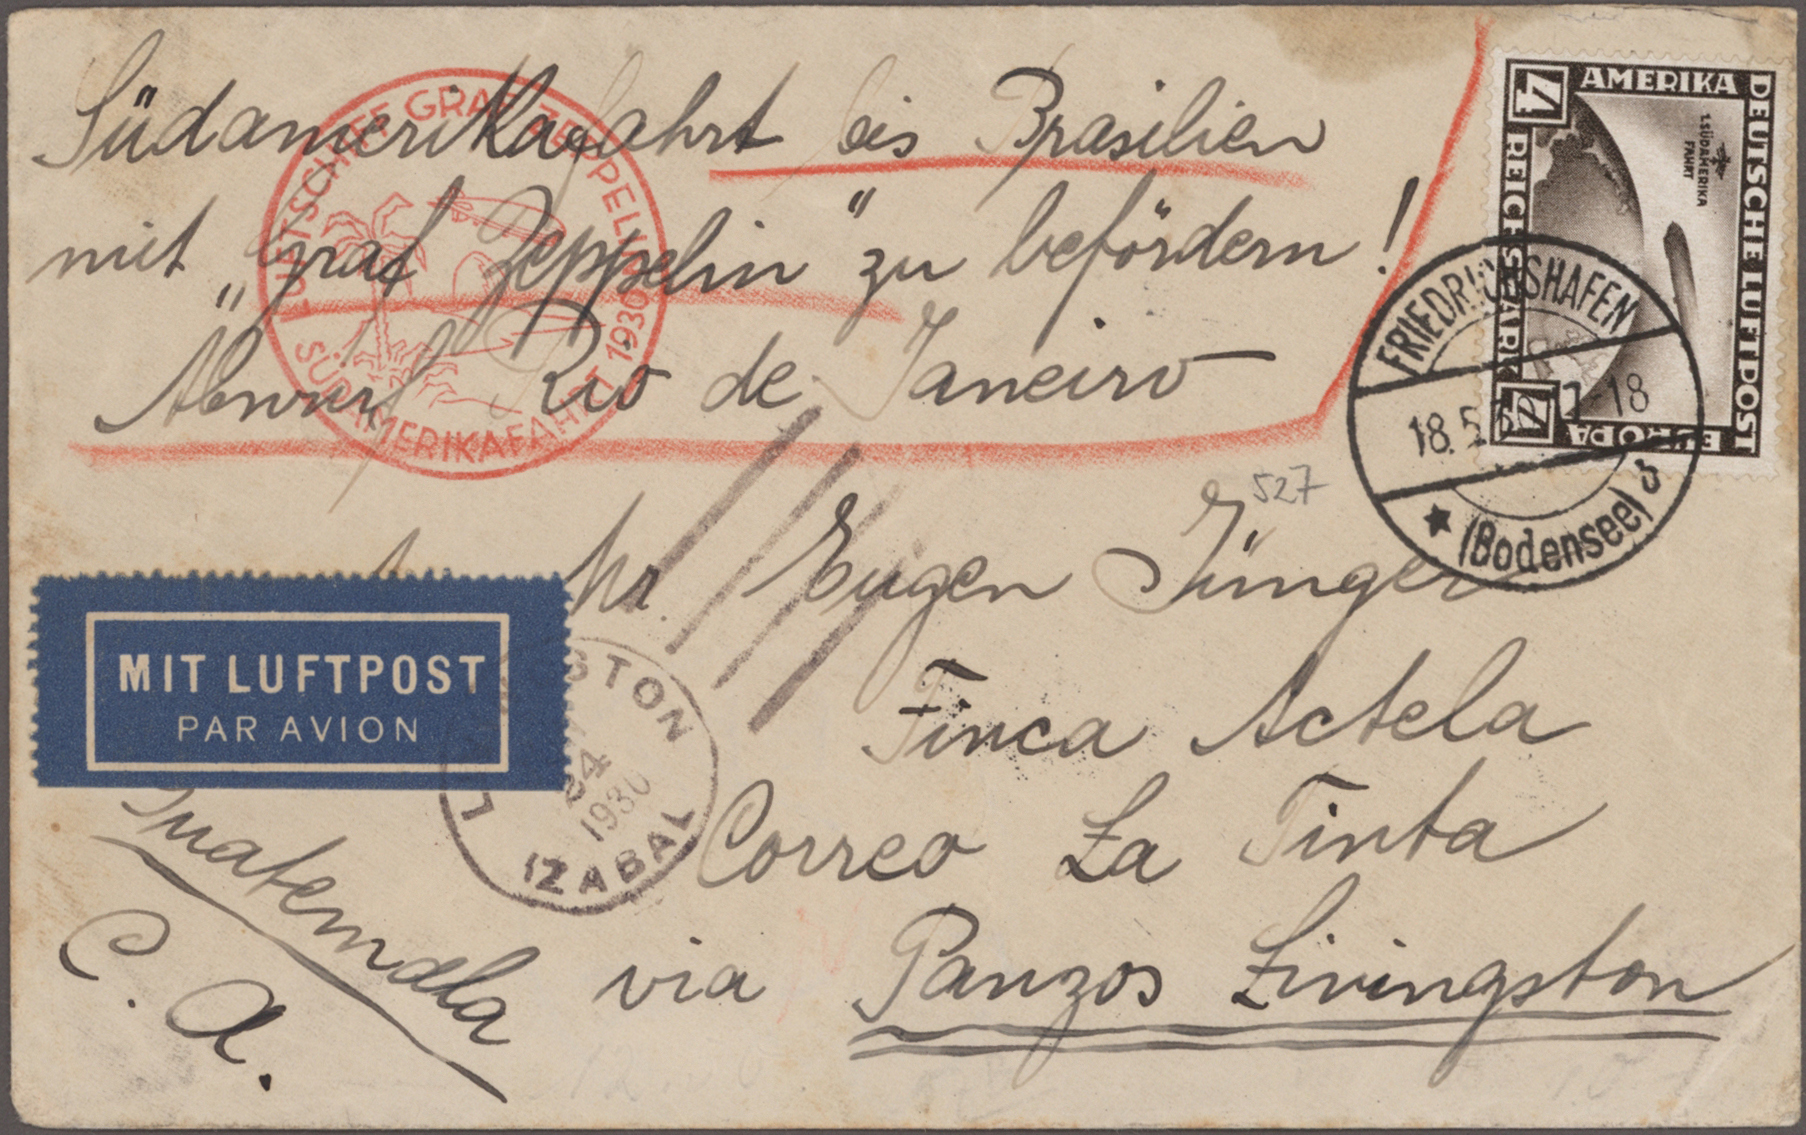 Südamerikafahrt bis Brasilien
mit „Graf Zeppelin“ zu befördern!
Abwurf Rio de Janeiro
LUFTSCHIFF GRAF ZEPPELIN 1930
SÜDAMERIKAFAHRT
AMERIKA
DEUTSCHE LUFTPOST
EUROPA
REICHSMARK
4
4
1. SÜDAMERIKA
FAHRT
FRIEDRICHSHAFEN
18.5.30 7-18
(Bodensee) b
527
Hr. Eugen Jünger
Finca Actela
Correo La Tinta
via Panzos Livingston
Guatemala
C. A.
MIT LUFTPOST
PAR AVION
L GSTON
24
1930
IZABAL